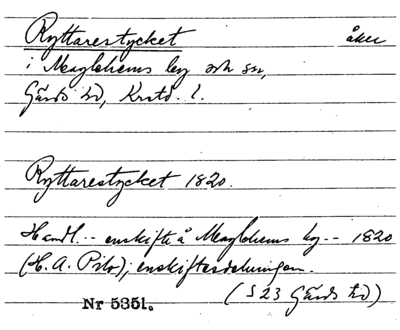 Ryttarestycket åker
i Maglehems by och sn,
Gärds hd, Krstd. l.
Ryttarestycket 1820.
Handl. -- enskifte å Maglehems by -- 1820
(H. A. Pilo); enskiftesdelningen.
(S 23 Gärds hd)
Nr 5351.